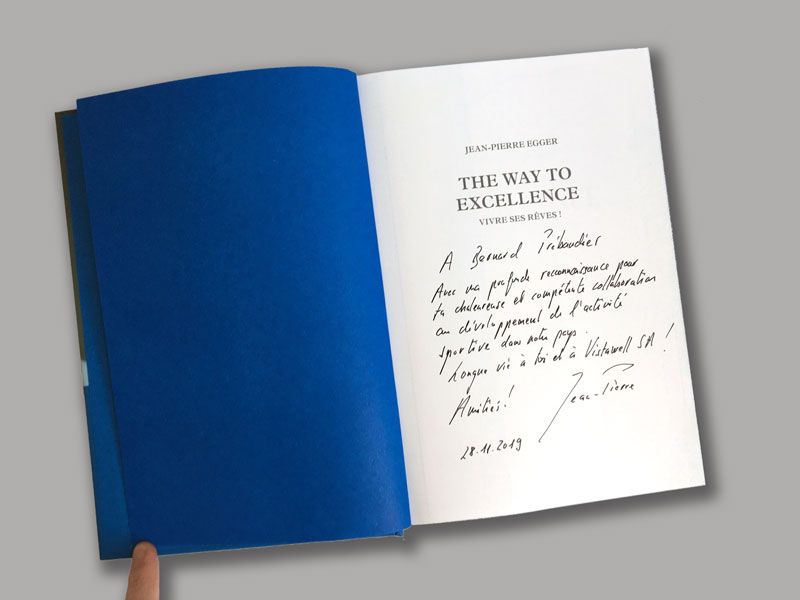 JEAN-PIERRE EGGER
THE WAY TO
EXCELLENCE
VIVRE SES RÊVES !
A Bernard Prébandier
Avec ma profonde reconnaissance pour
ta chaleureuse et compétente collaboration
au développement de l'activité
sportive dans notre pays.
Longue vie à toi et à Vistawell SA !
Amitiés !
Jean-Pierre
28.11.2019